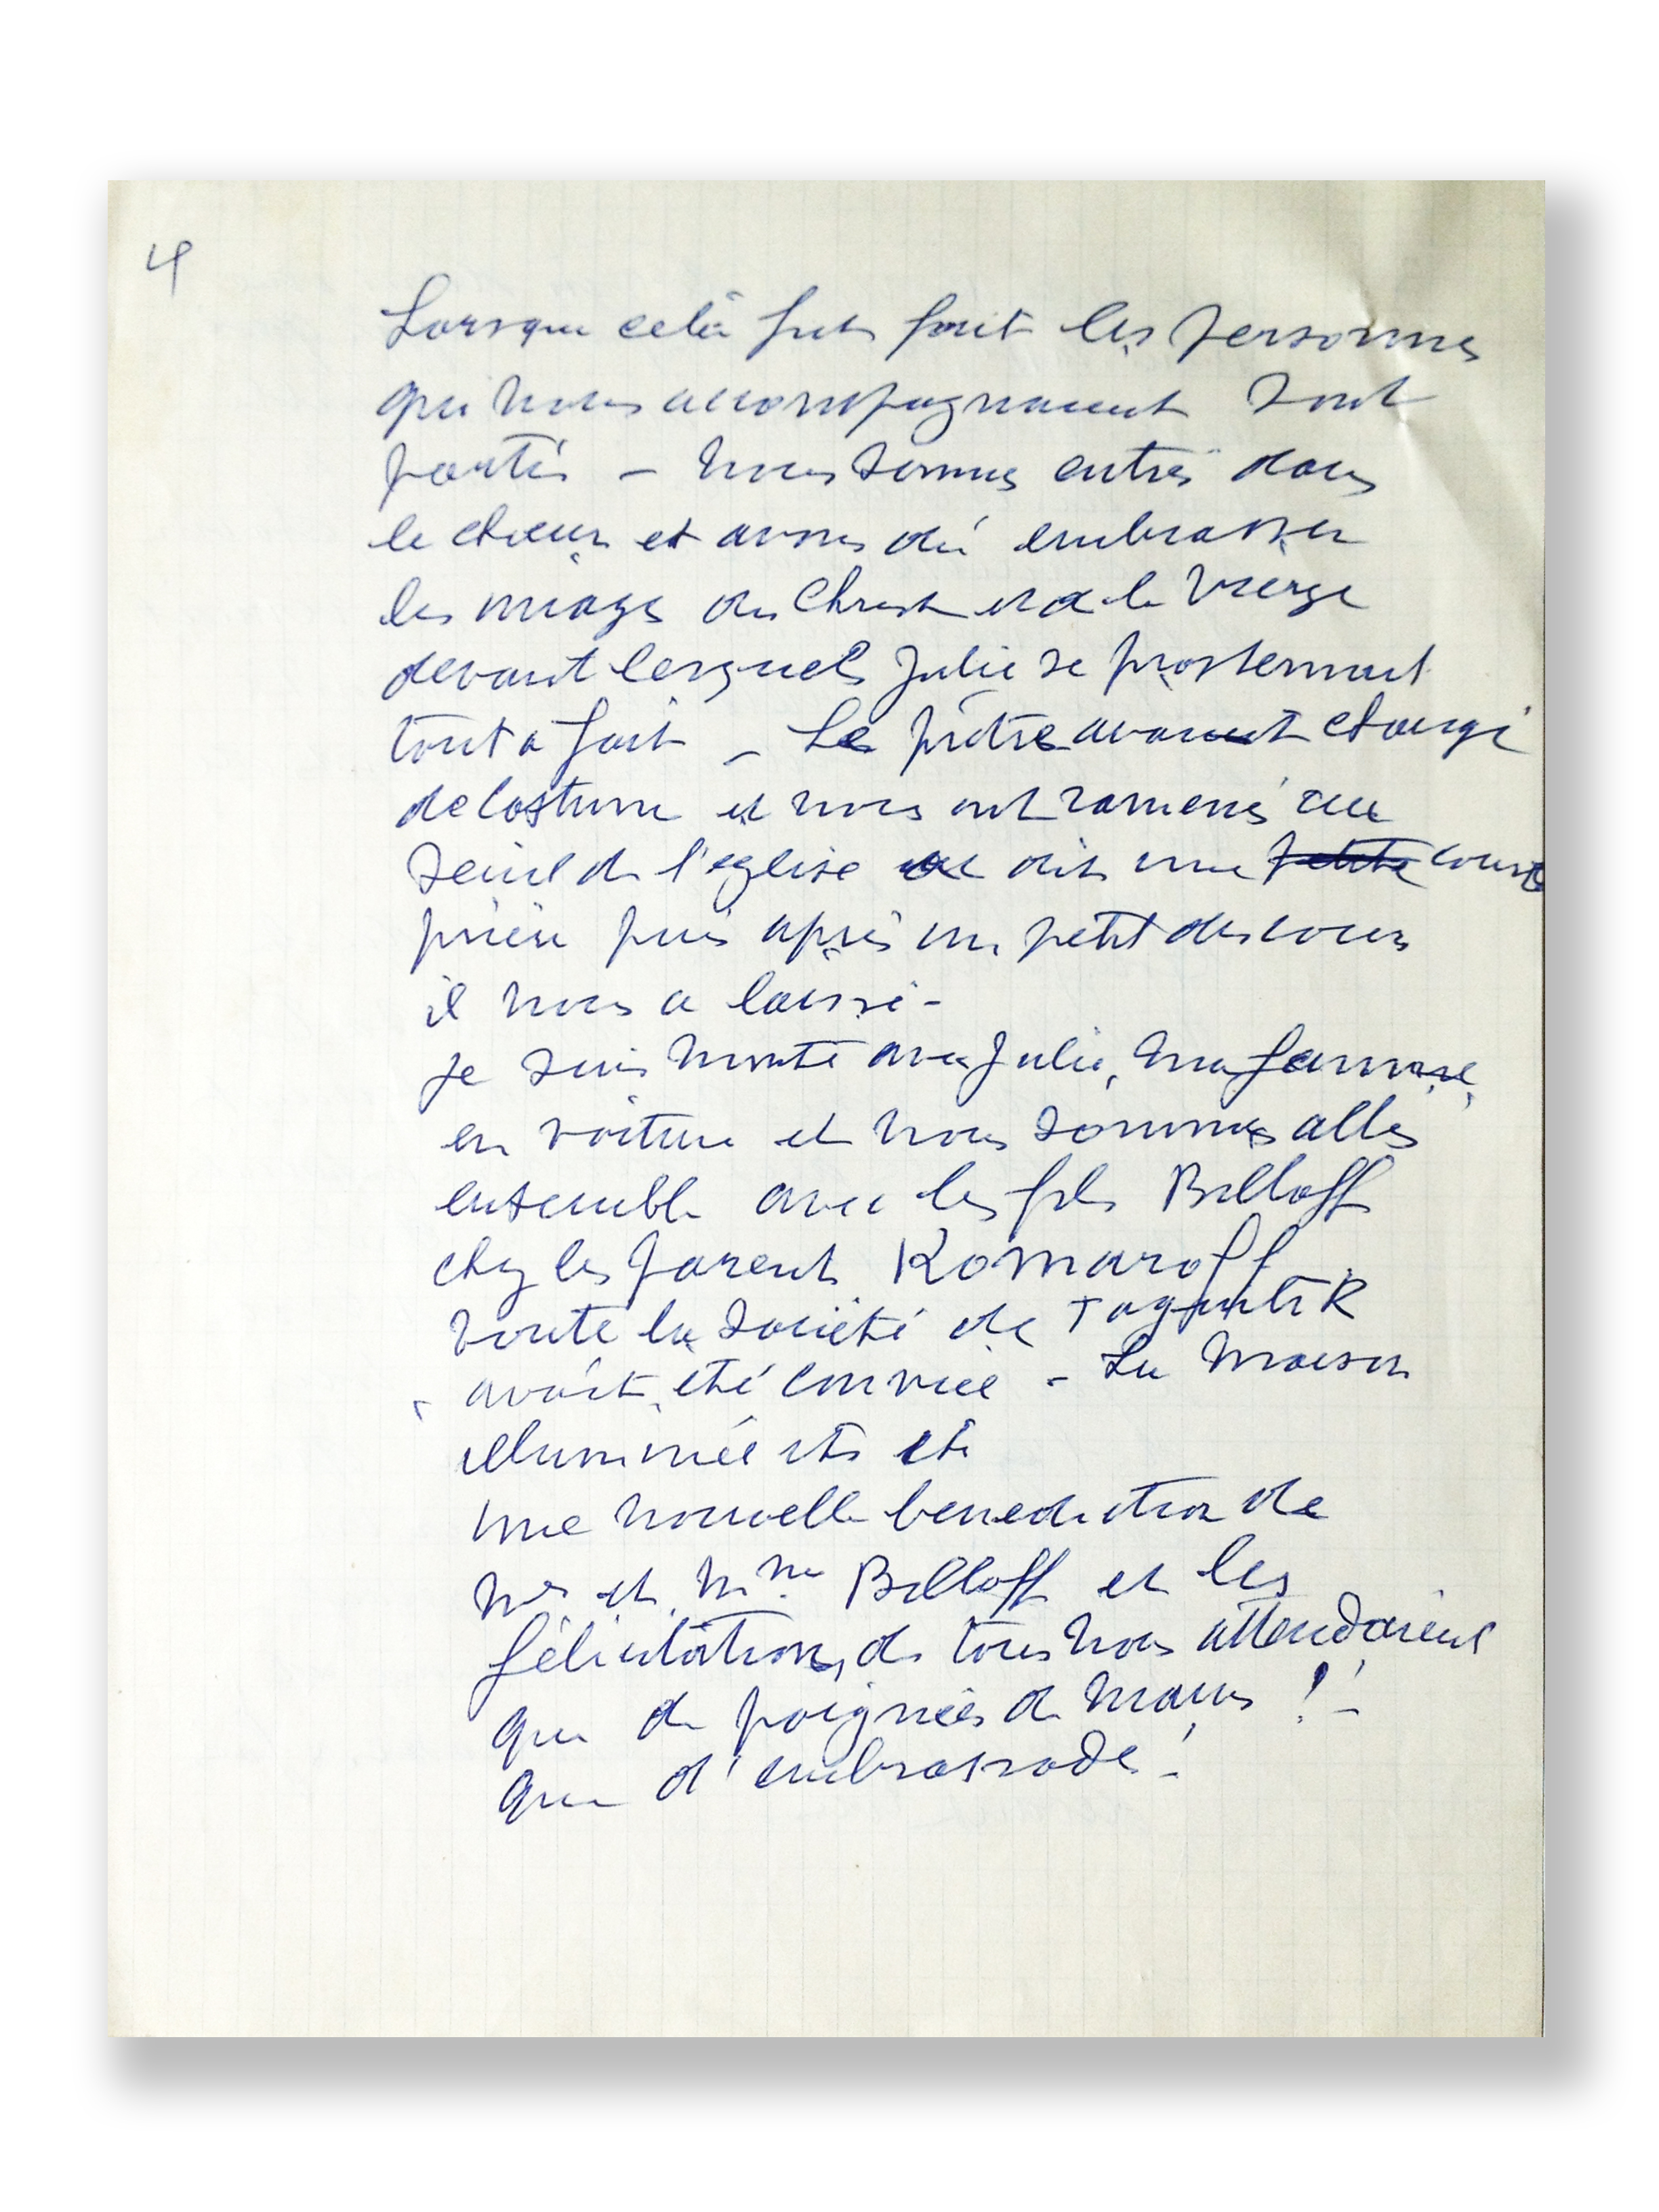 4
Lorsque celà fut fait les personnes
qui nous accompagnaient sont
partis - nous sommes entrés dans
le chœur et avons dû embrasser
les images du Christ et de la Vierge
devant lesquels Julie se prosternait
tout a fait - Le prêtre avait changé
de costume et nous ont ramenés au
seuil de l'eglise dit une petite courte
prière puis après un petit discours
il nous a laissé -
je suis monté avec Julie, ma femme,
en voiture et nous sommes allés
ensemble avec les fils Billoff
chez les parents Komaroff
toute la société de
avait été conviée - La maison
illuminée etc etc
une nouvelle benediction de
Mr et Mme Billoff et les
félicitations de tous nous attendaient
que de poignées de mains ! -
que d'embrassade ! -